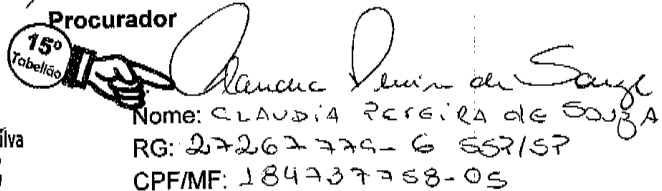 Procurador
15º
Tabelião
Claudia Pereira de Souza
Nome: CLAUDIA PEREIRA de SOUZA
ilva
RG: 27267779-6 SSP/SP
CPF/MF: 184737758-05